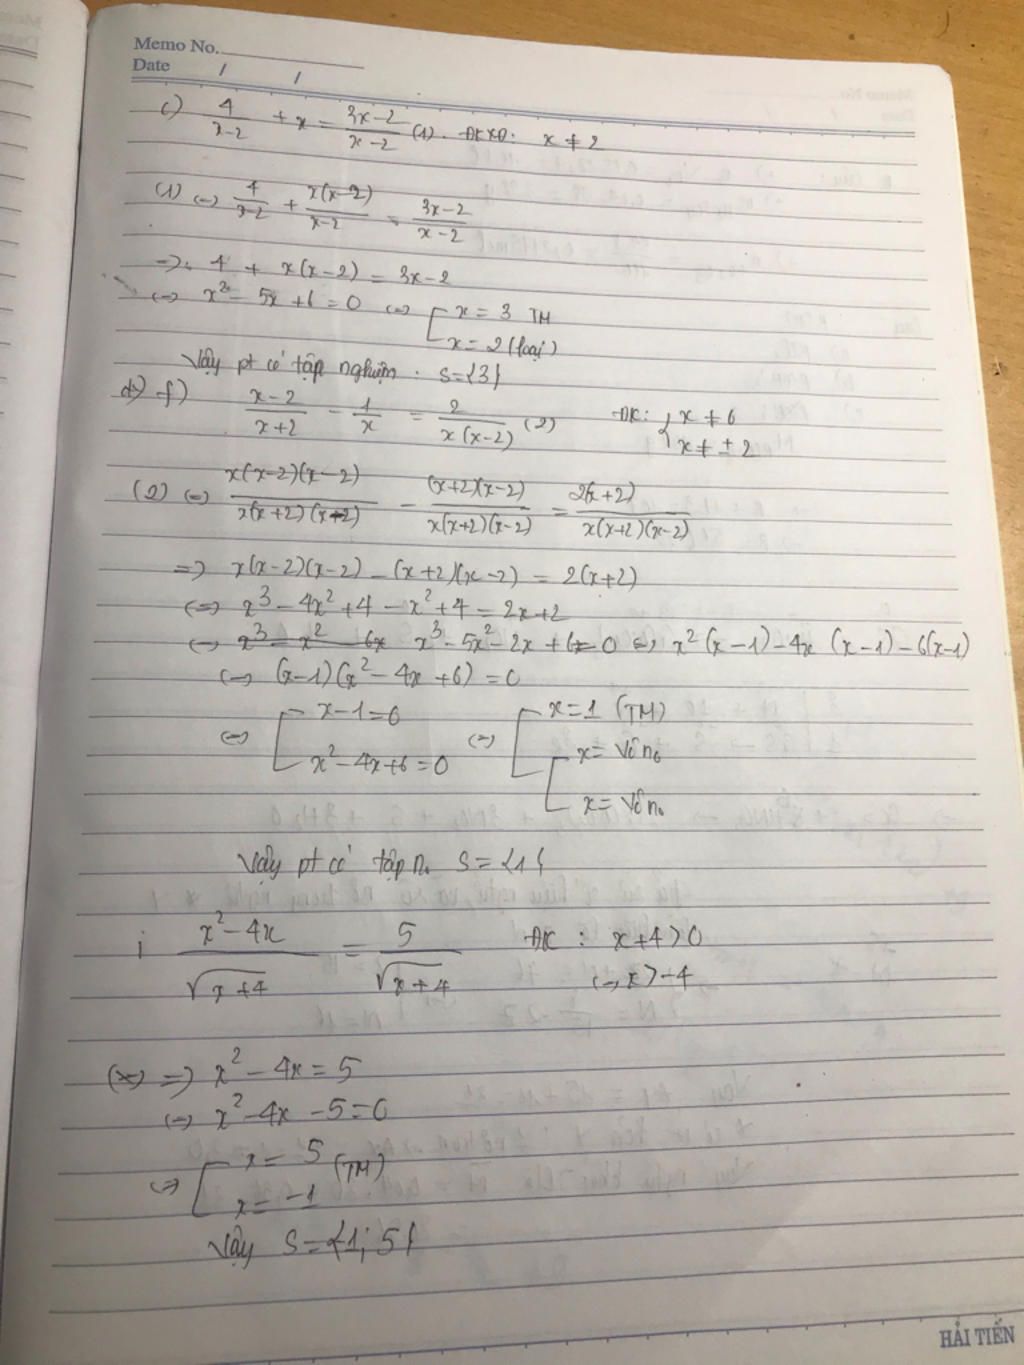 Memo No.
Date / /
c) 4/(x-2) + x = (3x-2)/(x-2) (1). ĐKXĐ: x ≠ 2
(1) (=) 4/(x-2) + x(x-2)/(x-2) = (3x-2)/(x-2)
=) 4 + x(x-2) = 3x-2
(=) x² - 5x + 6 = 0 (=) [ x = 3 TM
x = 2 (loại)
Vậy pt có tập nghiệm : S={3}
f) (x-2)/(x+2) - 1/x = 2/(x(x-2)) (2) ĐK: { x ≠ 0
x ≠ ±2
(2) (=) x(x-2)(x-2)/(x(x+2)(x-2)) - (x+2)(x-2)/(x(x+2)(x-2)) = 2(x+2)/(x(x+2)(x-2))
=) x(x-2)(x-2) - (x+2)(x-2) = 2(x+2)
(=) x³ - 4x² + 4 - x² + 4 = 2x+2
(=) x³ - x² - 6x x³ - 5x² - 2x + 6 = 0 (=) x²(x-1) - 4x (x-1) - 6(x-1)
(=) (x-1)(x² - 4x + 6) = 0
(=) [ x-1=0 (=) [ x=1 (TM)
x² - 4x + 6 = 0 [ x= Vô n₀
x= Vô n₀
Vậy pt có tập n₀ S = {1}
i (x² - 4x)/√(x+4) = 5/√(x+4) ĐK : x+4>0
(=) x>-4
(*) =) x² - 4x = 5
(=) x² - 4x - 5 = 0
(=) [ x = 5 (TM)
x = -1
Vậy S={1; 5}
HẢI TIẾN